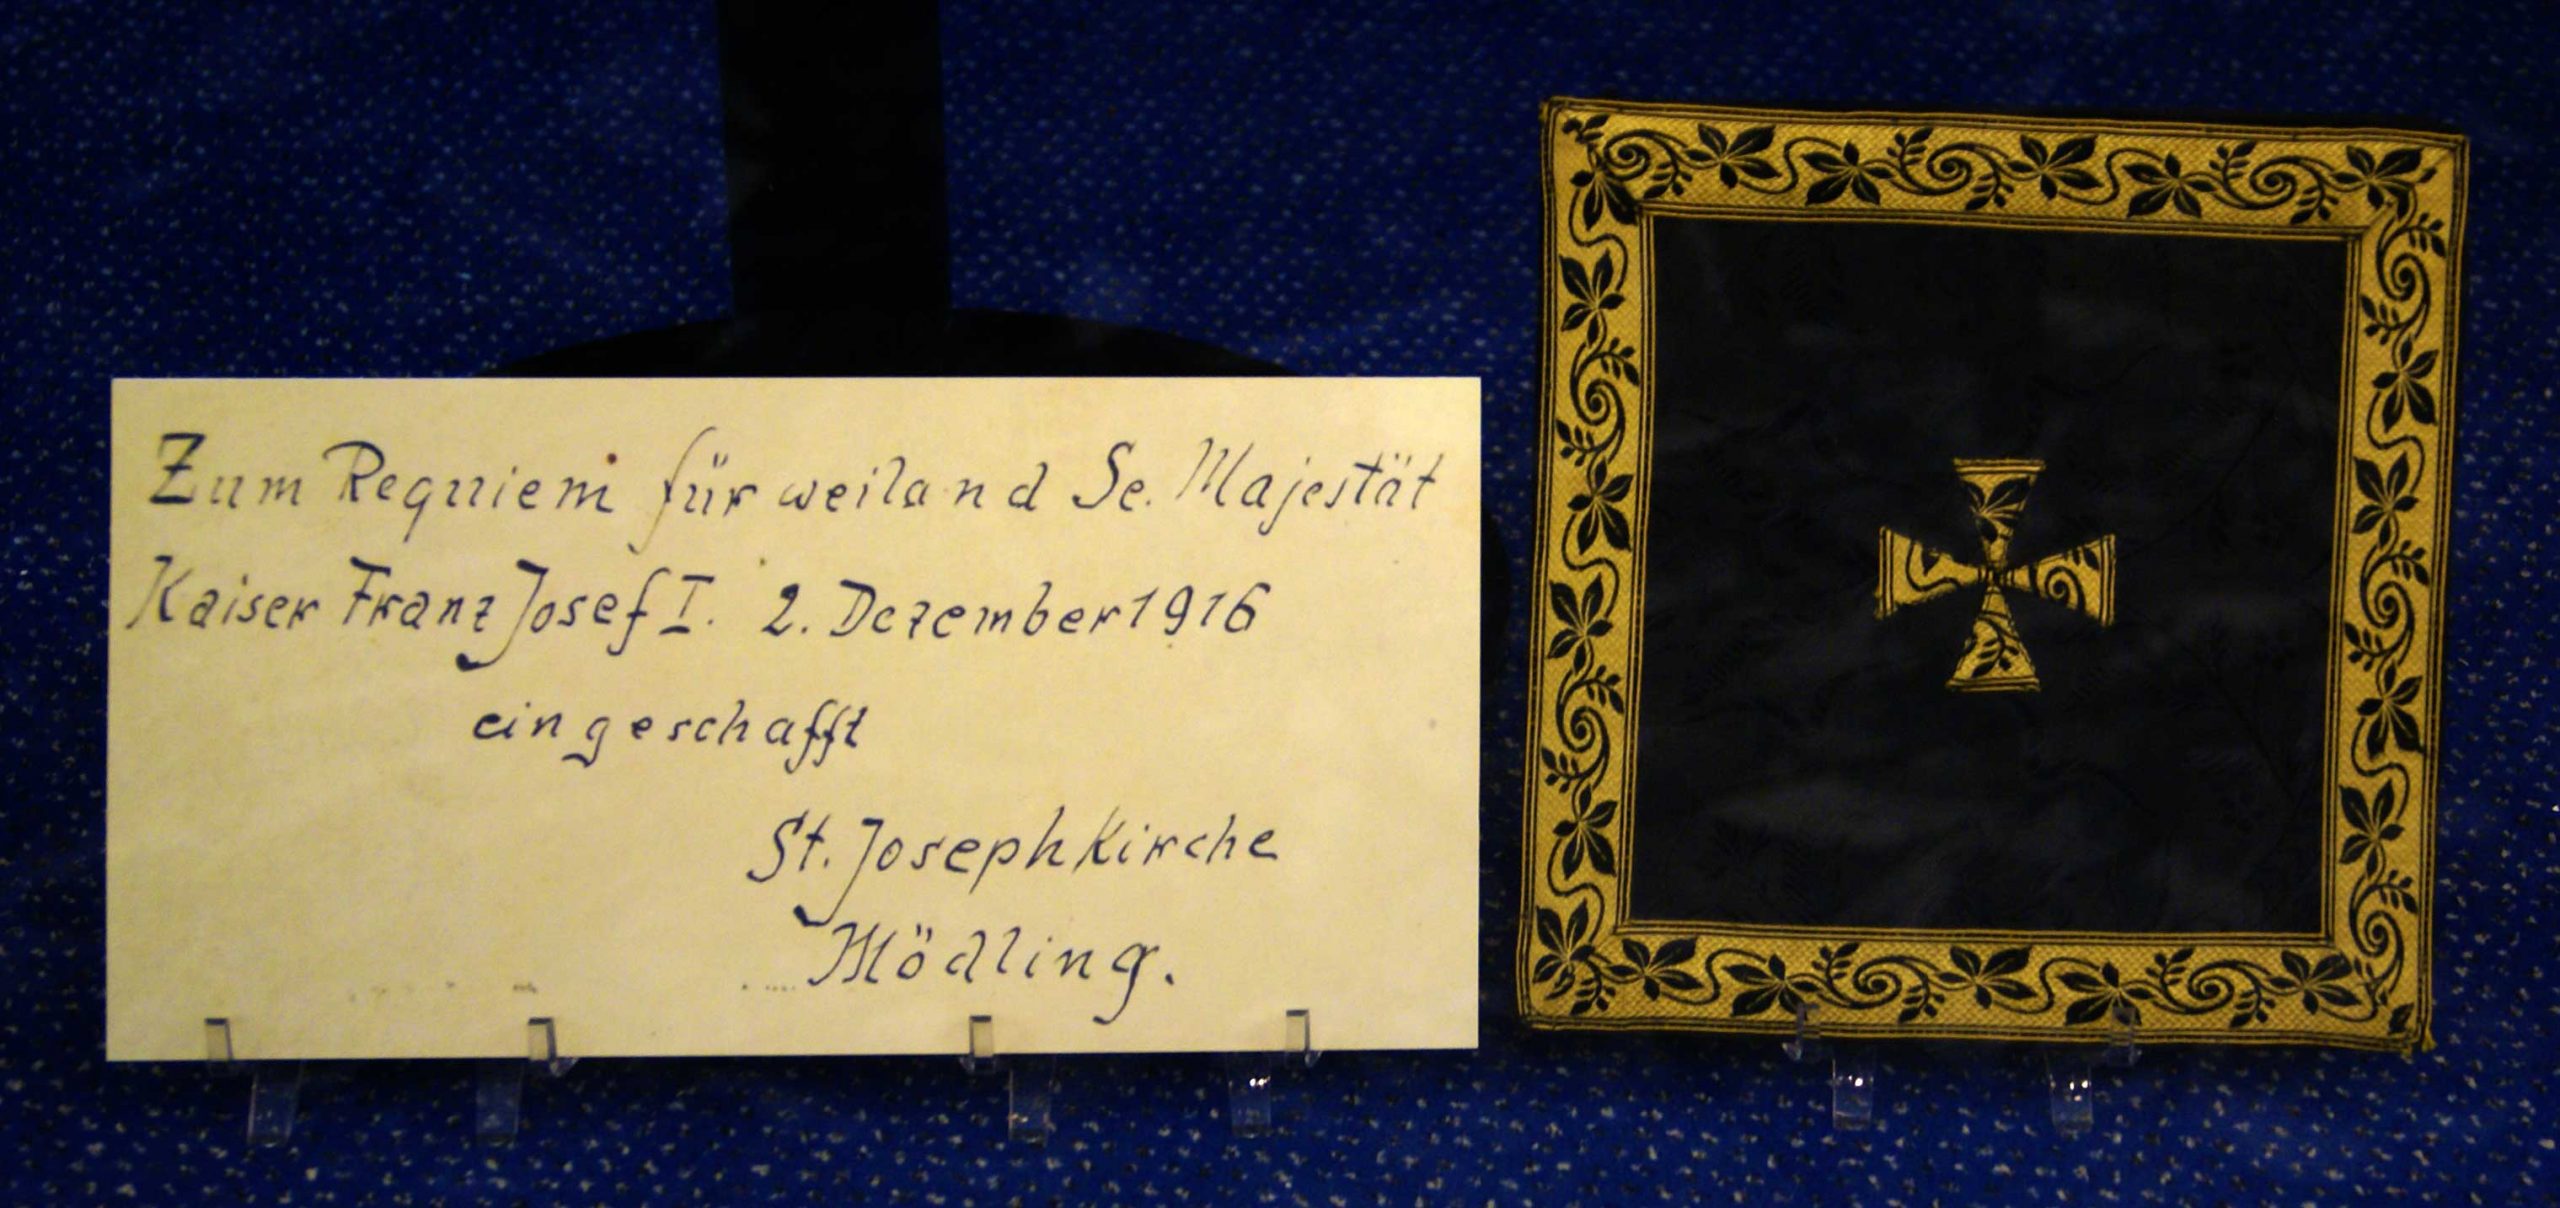 Zum Requiem für weiland Se. Majestät
Kaiser Franz Josef I. 2. Dezember 1916
eingeschafft
St. Joseph Kirche
Mödling.